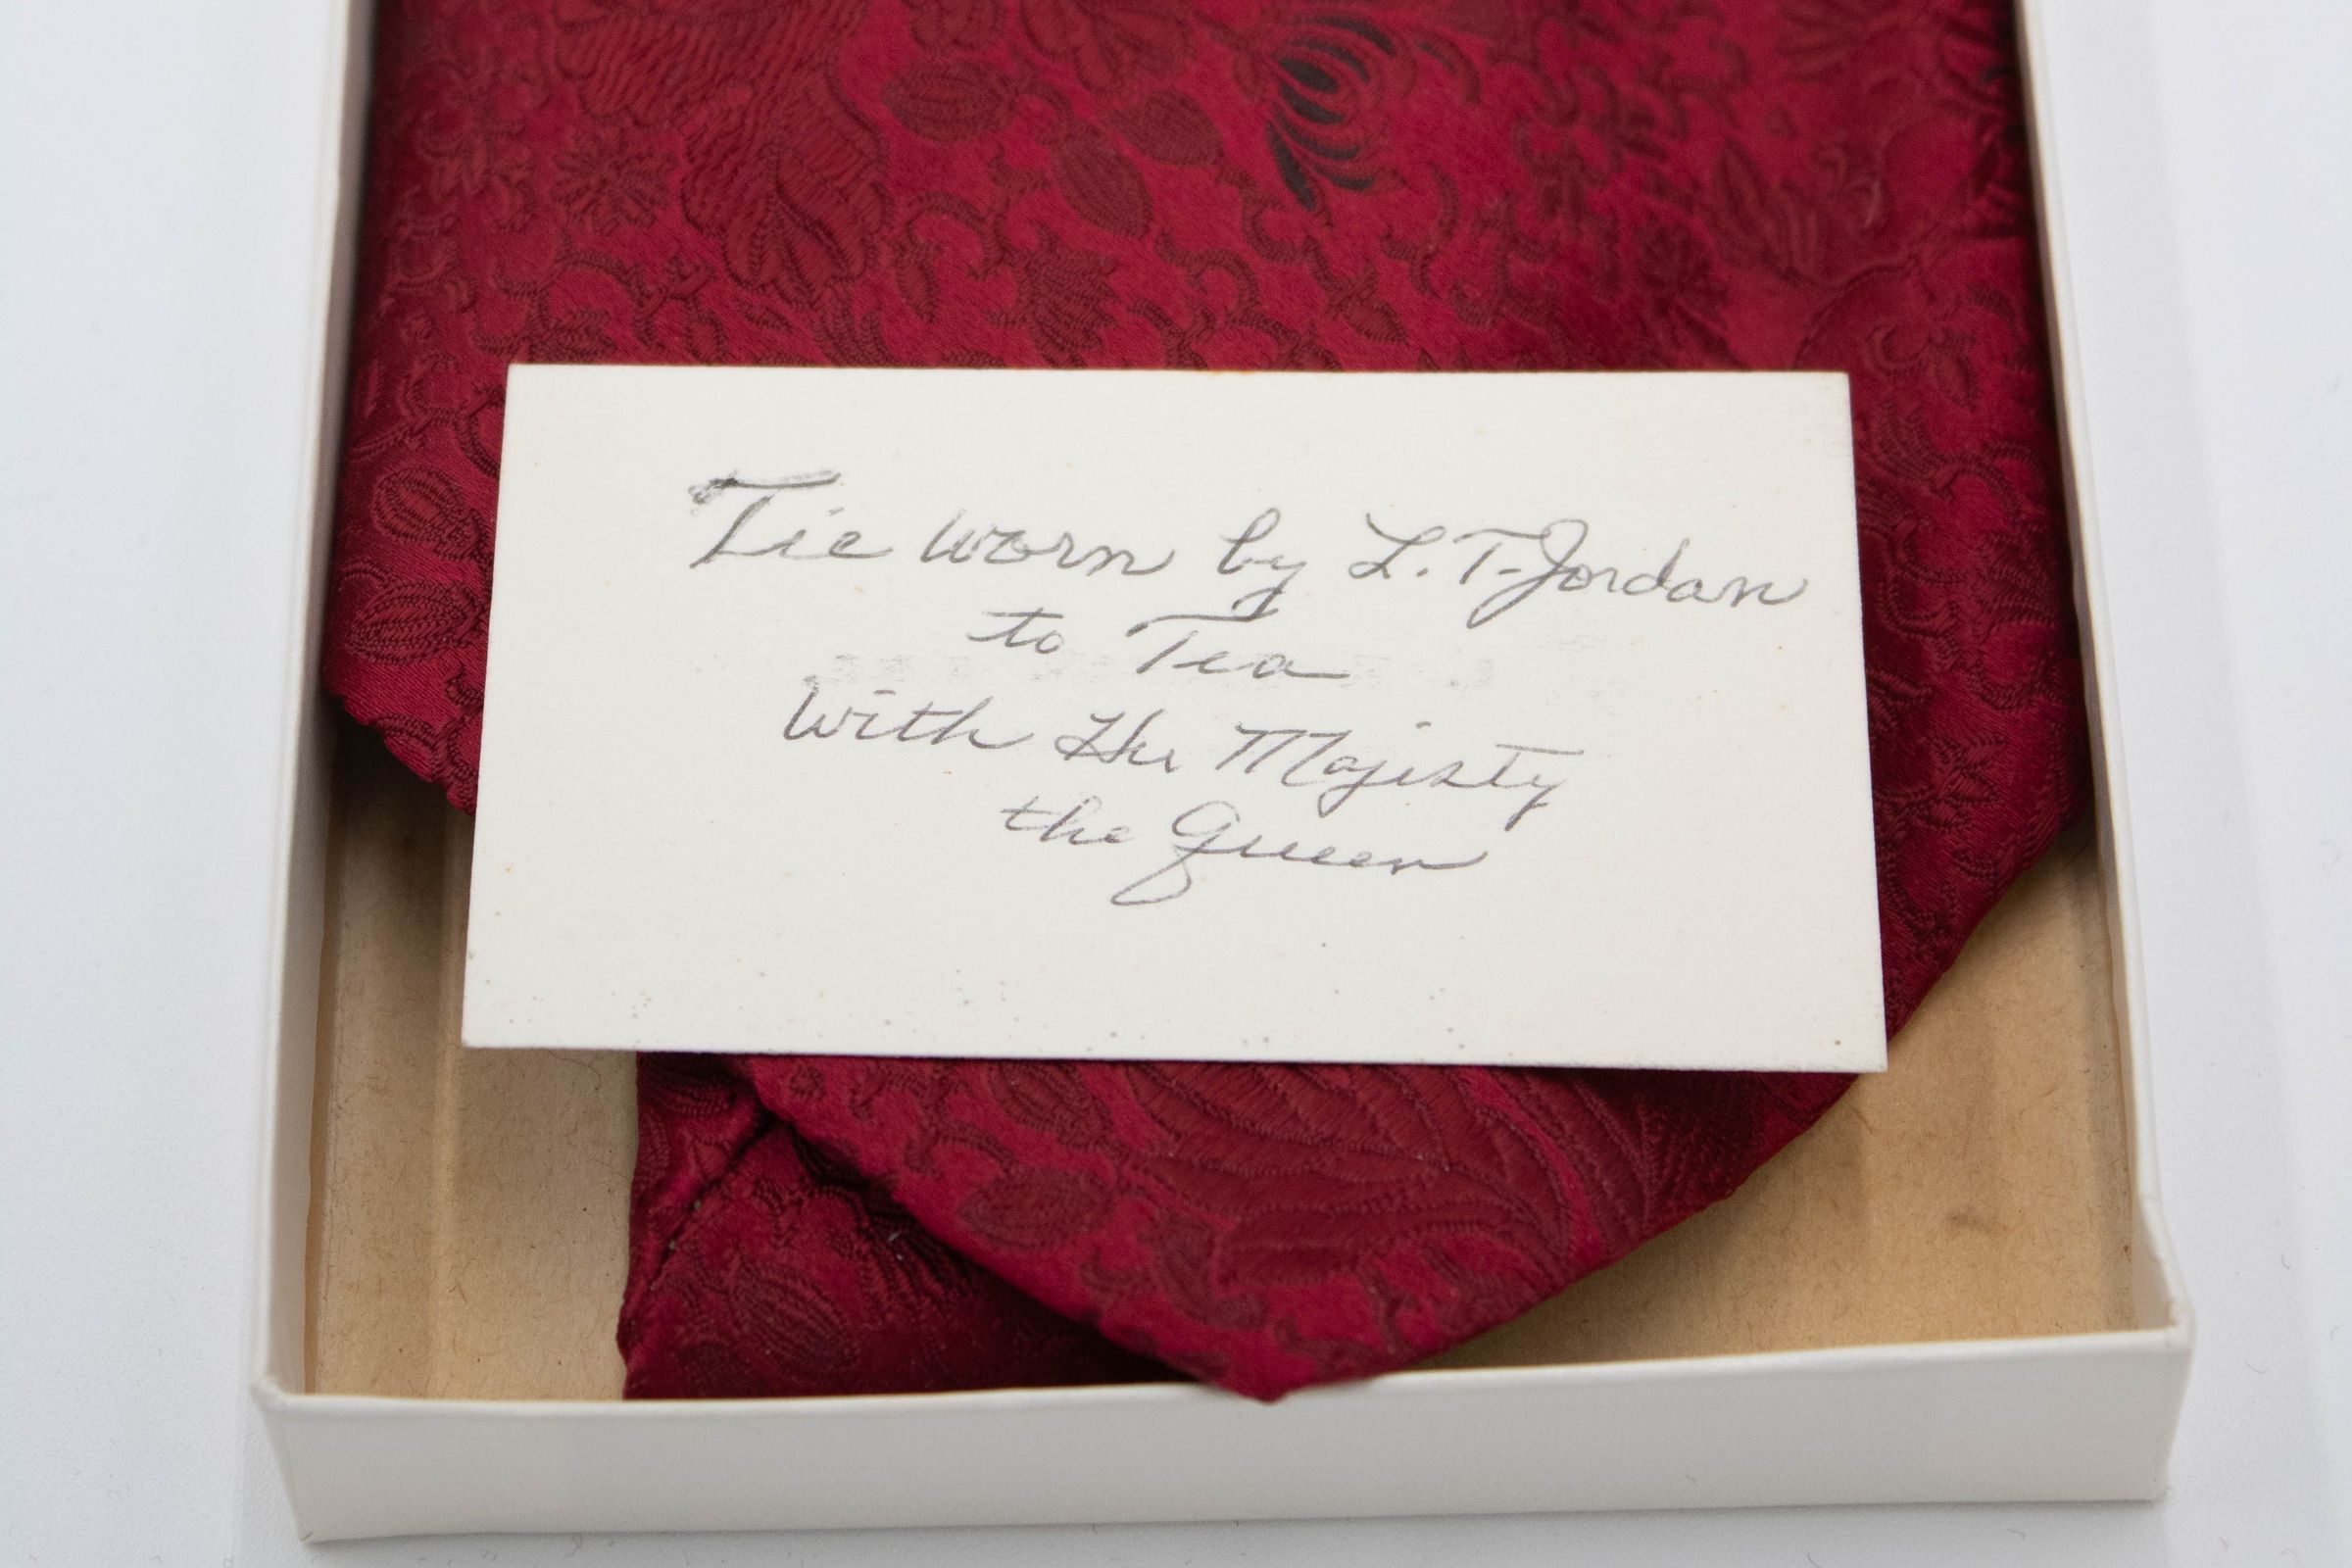 Tie worn by L.T. Jordan
to Tea
with Her Majisty
the Queen